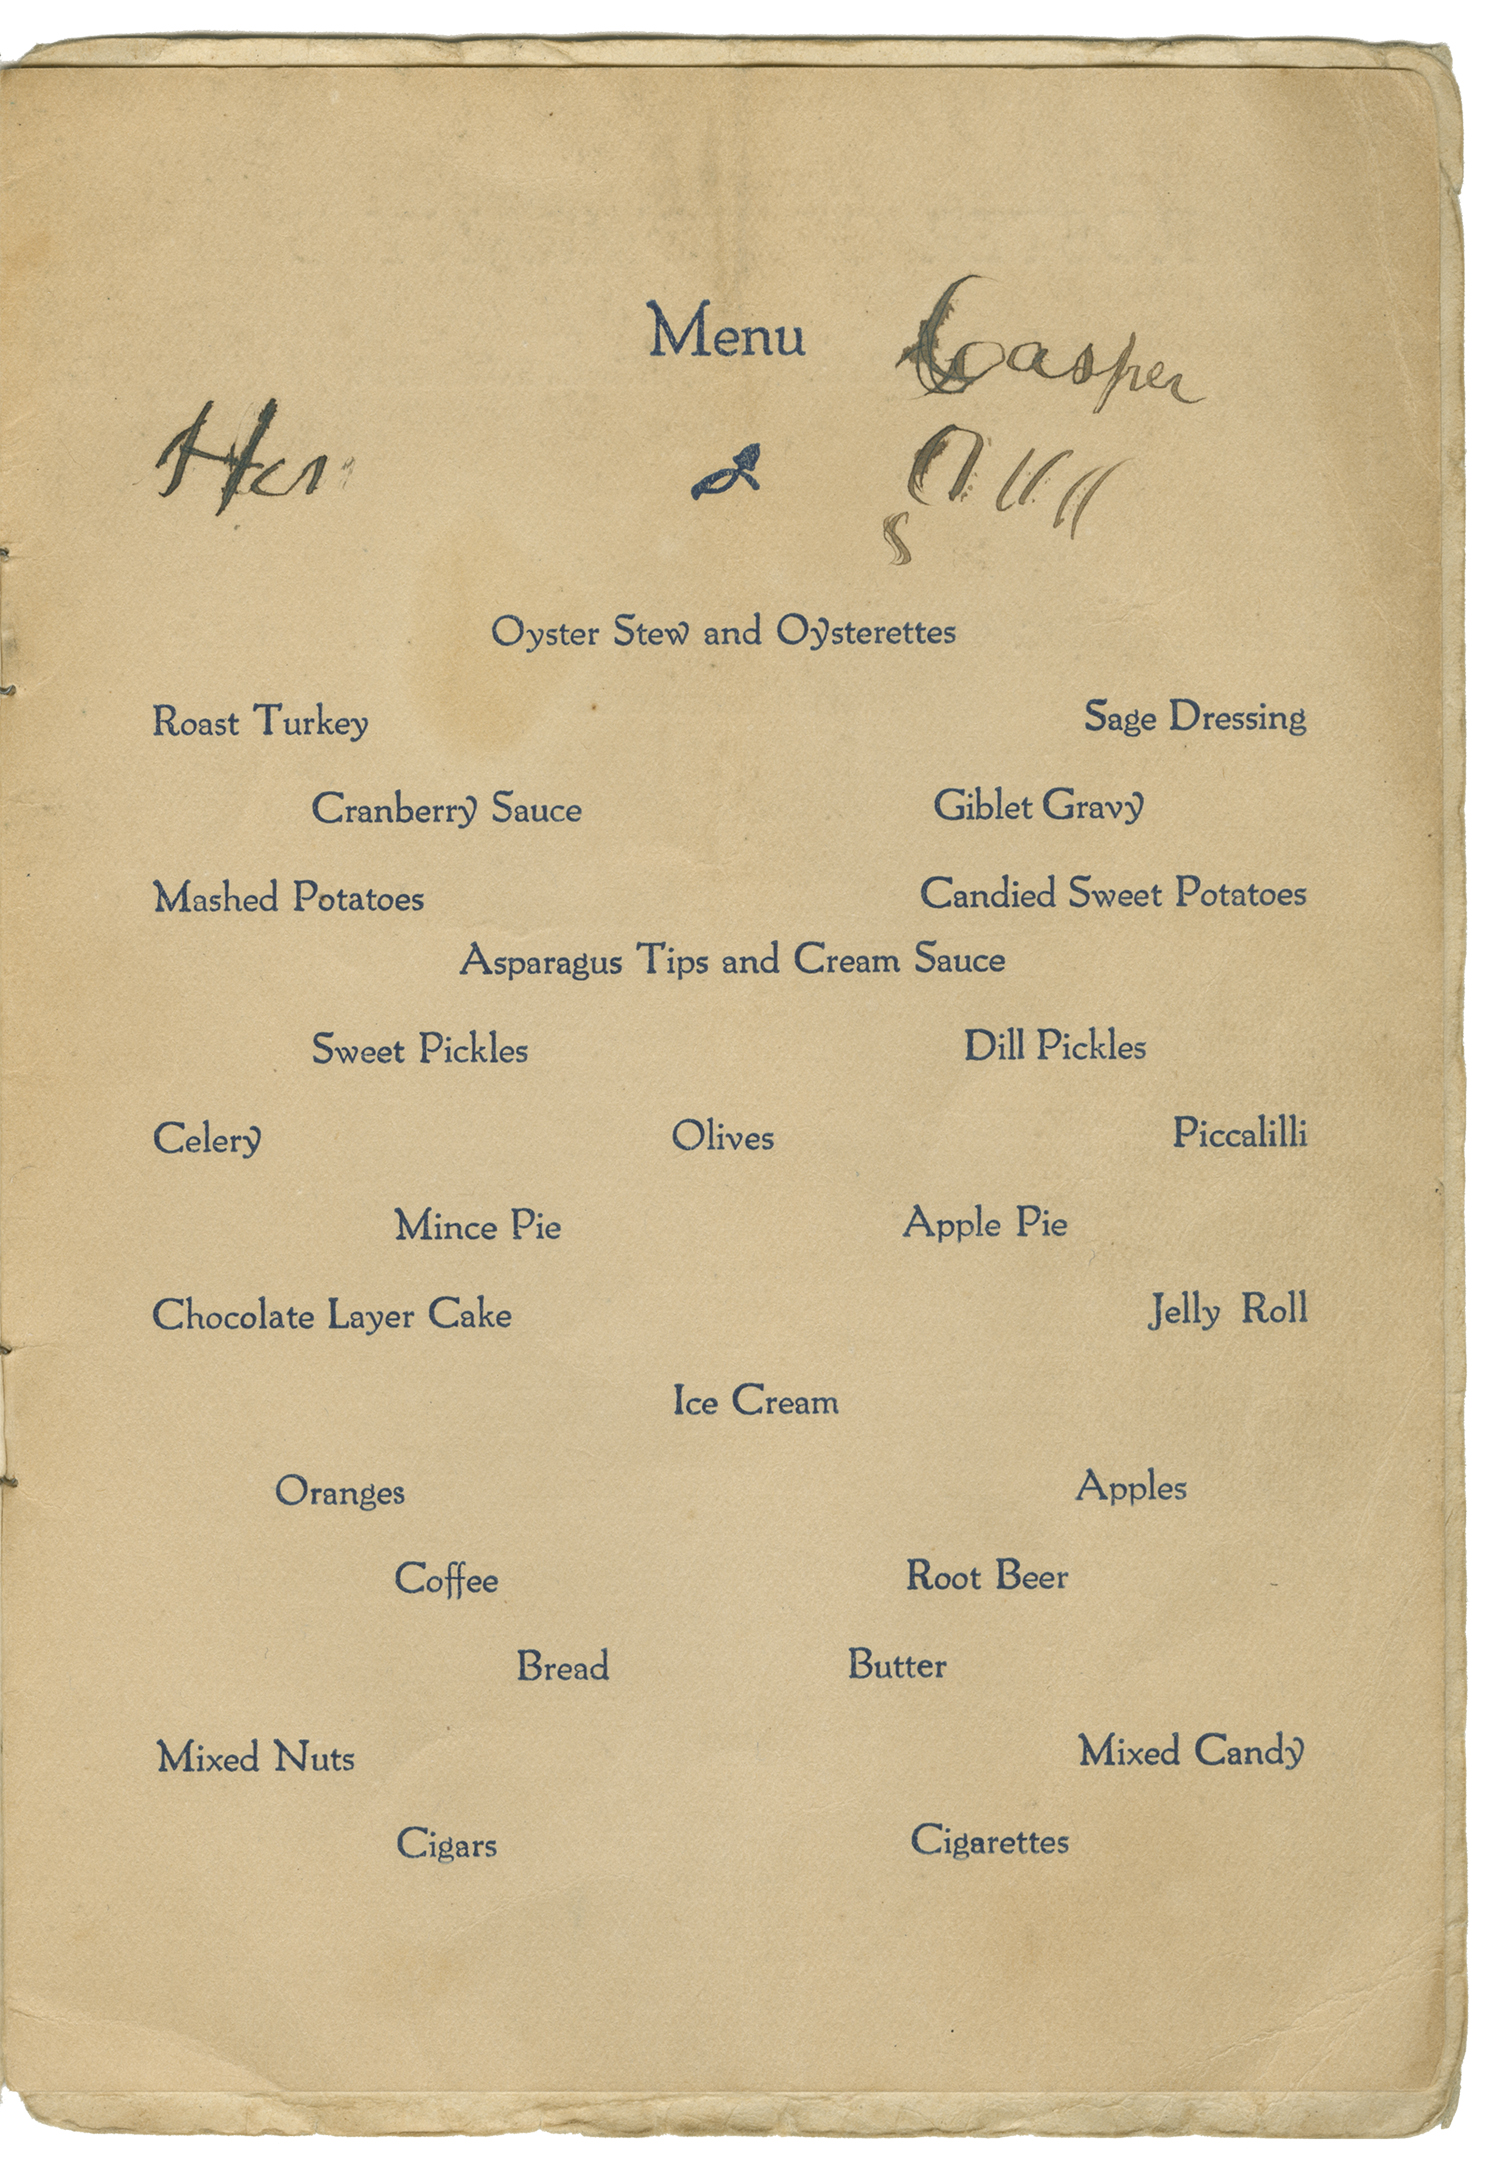 Menu
Casper
Oyster Stew and Oysterettes
Roast Turkey Sage Dressing
Cranberry Sauce Giblet Gravy
Mashed Potatoes Candied Sweet Potatoes
Asparagus Tips and Cream Sauce
Sweet Pickles Dill Pickles
Celery Olives Piccalilli
Mince Pie Apple Pie
Chocolate Layer Cake Jelly Roll
Ice Cream
Oranges Apples
Coffee Root Beer
Bread Butter
Mixed Nuts Mixed Candy
Cigars Cigarettes